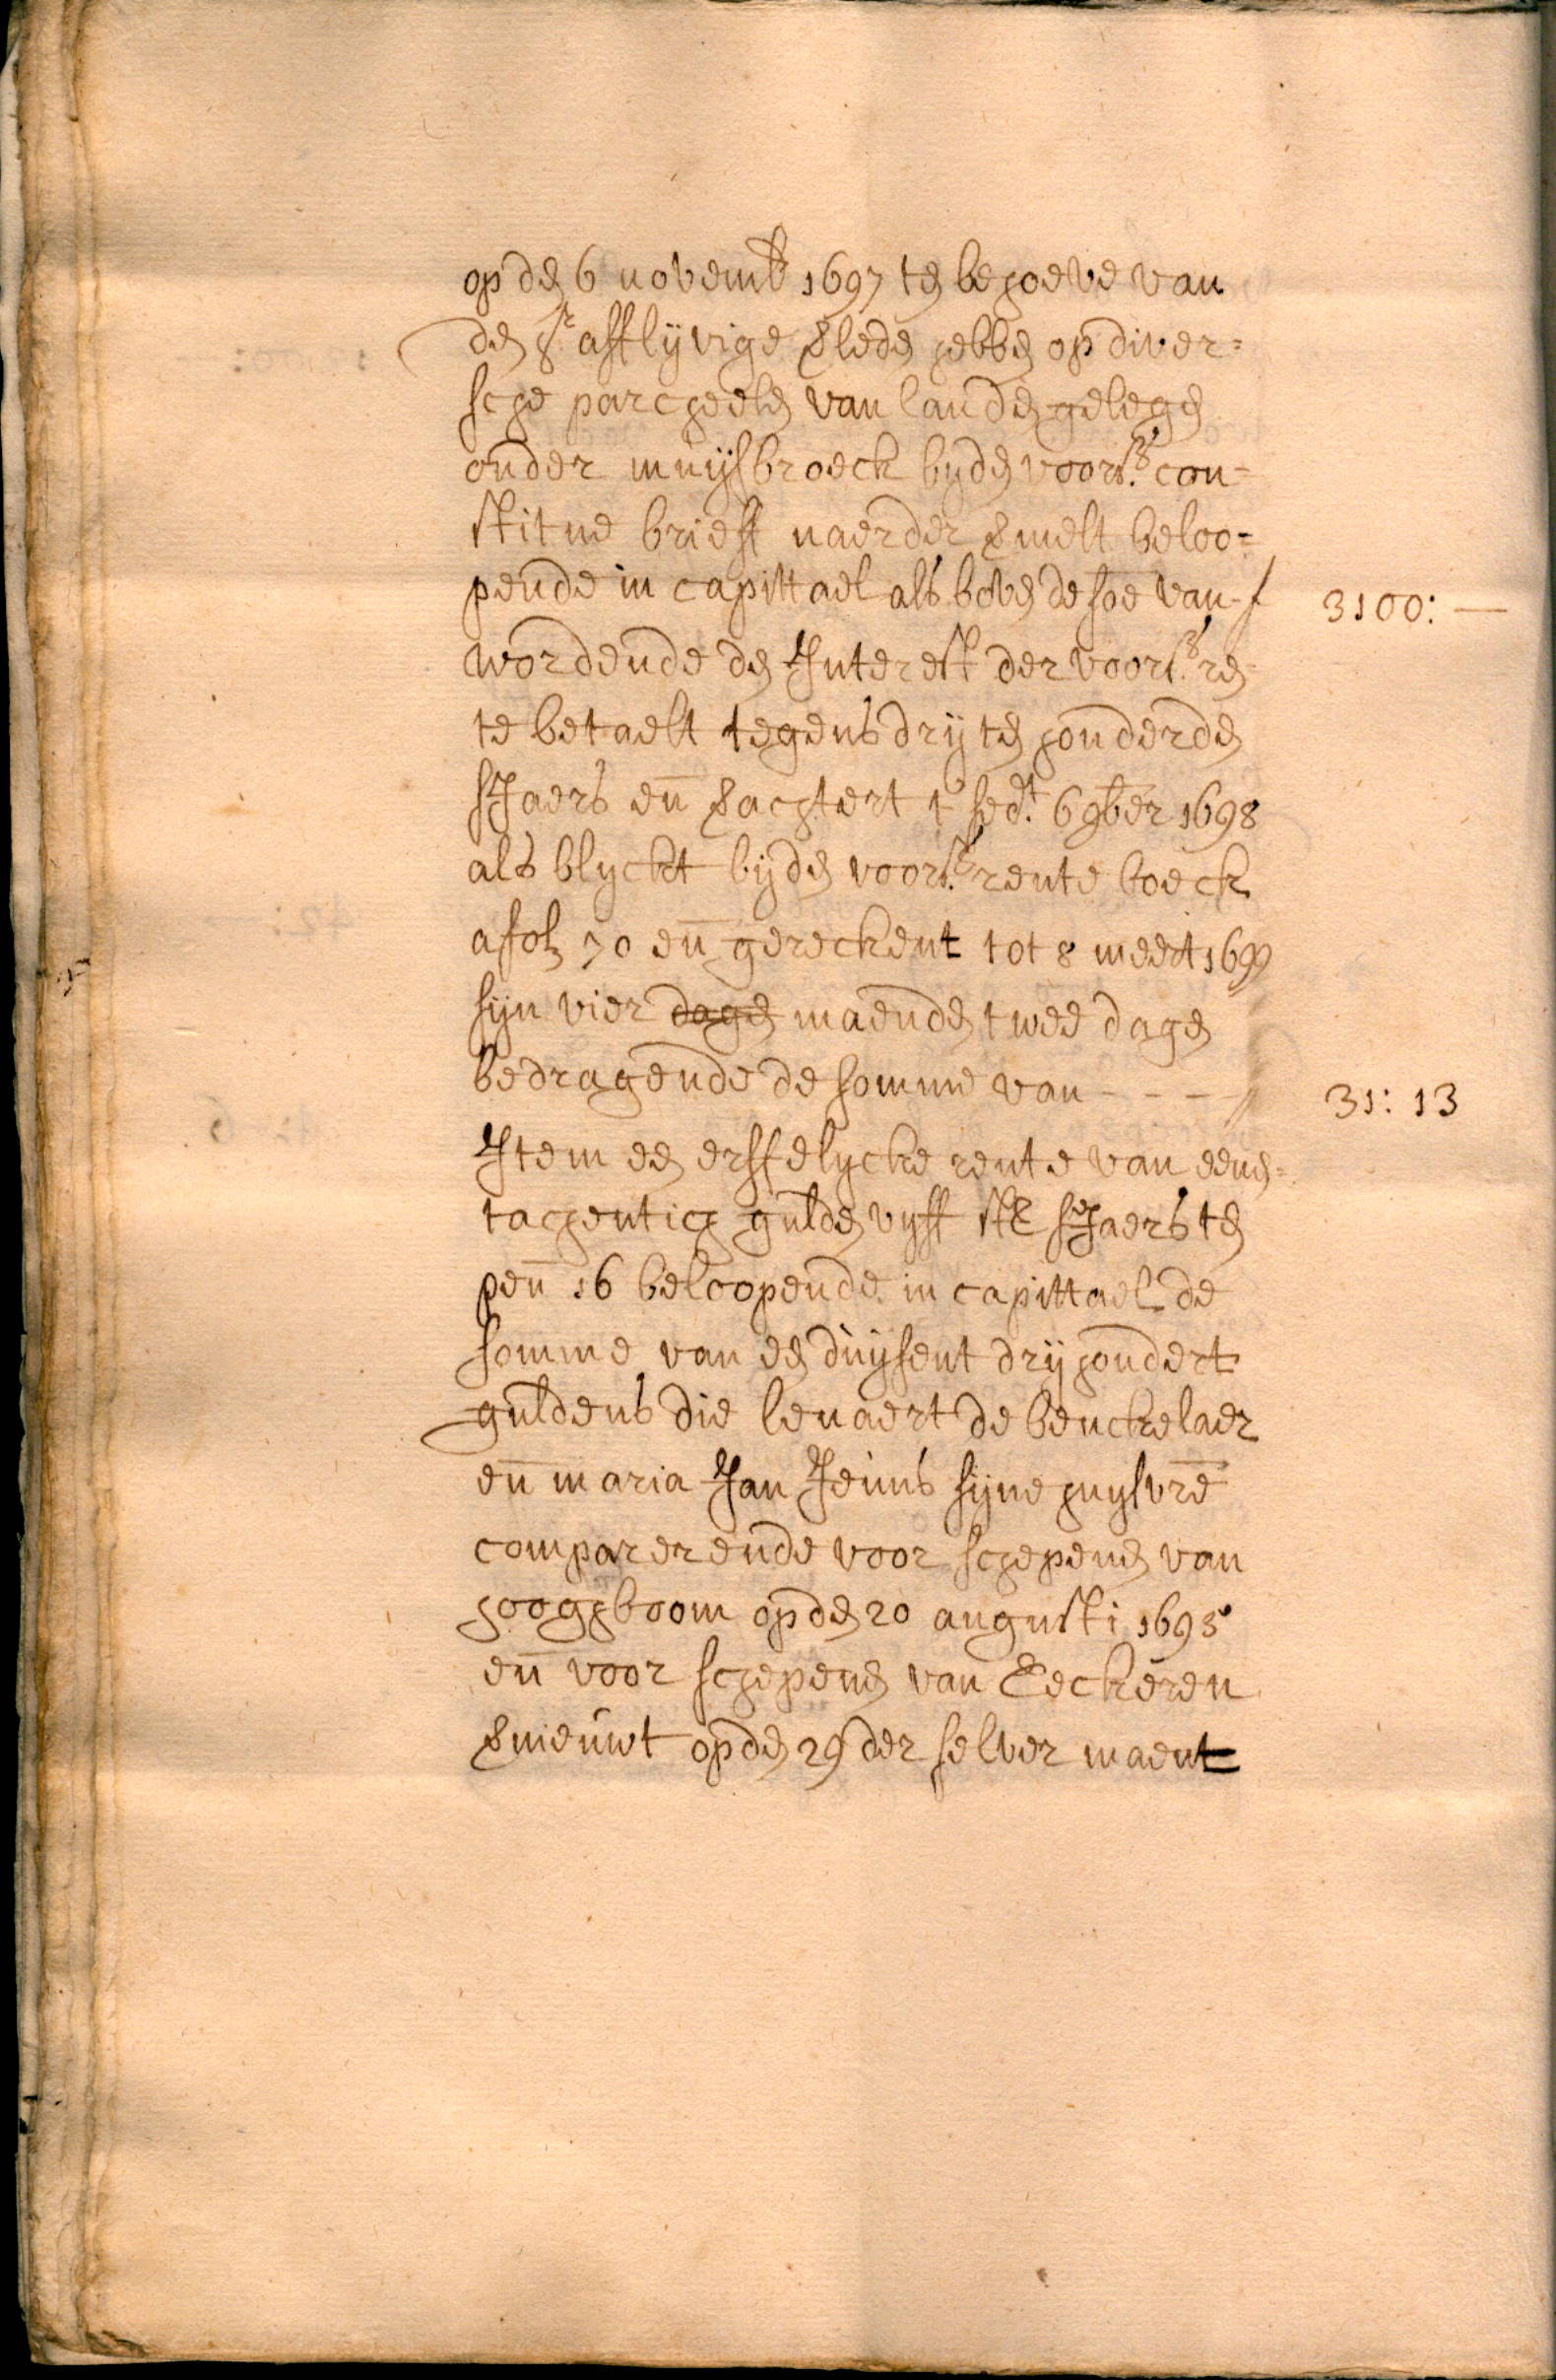 op den 6 novemb 1697 ten behoeve van
den hr afflyvige verleden hebben op diver=
sche parcheelen van landen gelegen
onder muysbroeck byden voors. con=
stitue brieff naerder vermelt beloo=
pende in capittael als boven de soe van f 3100: —
wordende den Interest der voors. ren=
te betaelt tegens dry ten honderden
sJaers en verachtert t' sedt. 6 9ber 1698
als blyckt byden voors. rente boeck
a fol. 70 en gereckent tot 8 meert 1699
syn vier dagen maenden twee dagen
bedragende de somme van - - - - 31: 13
Item een erffelycke rente van eenen=
tachentich gulden vyff st. sJaers ten
pen 16 beloopende in capittael de
somme van een duysent dry hondert
guldens die lenaert de benckelaer
en maria Jan Jeuns syne huysvre
comparerende voor schepenen van
hooghboom opden 20 augusti 1695
en voor schepenen van Eeckeren
vernieuwt opden 29 der selver maent